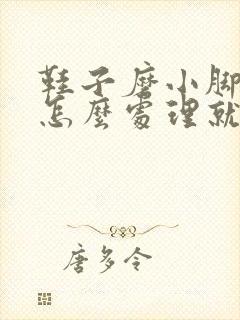 鞋子磨小脚
怎麼處理就
唐多令